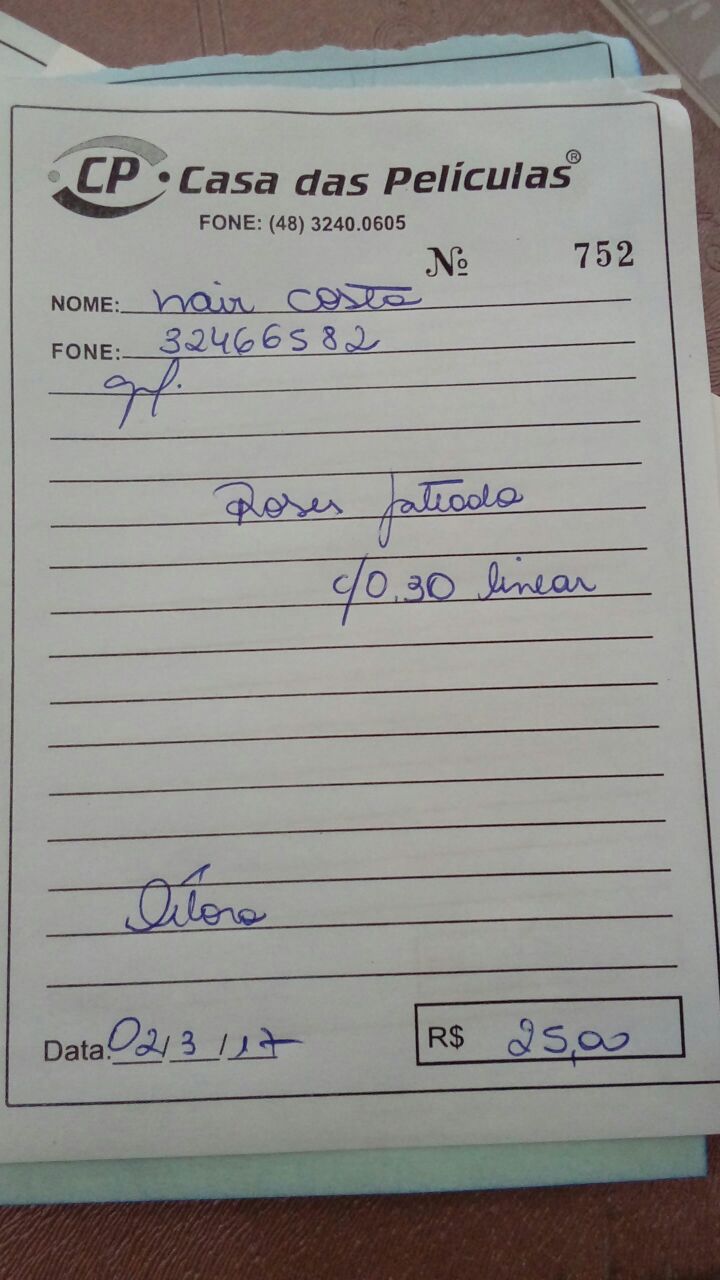 CP • Casa das Películas®
FONE: (48) 3240.0605
Nº 752
NOME: nair costa
FONE: 32466582
Roses jateado
c/0,30 linear
Data: 02/3/17
R$ 25,00